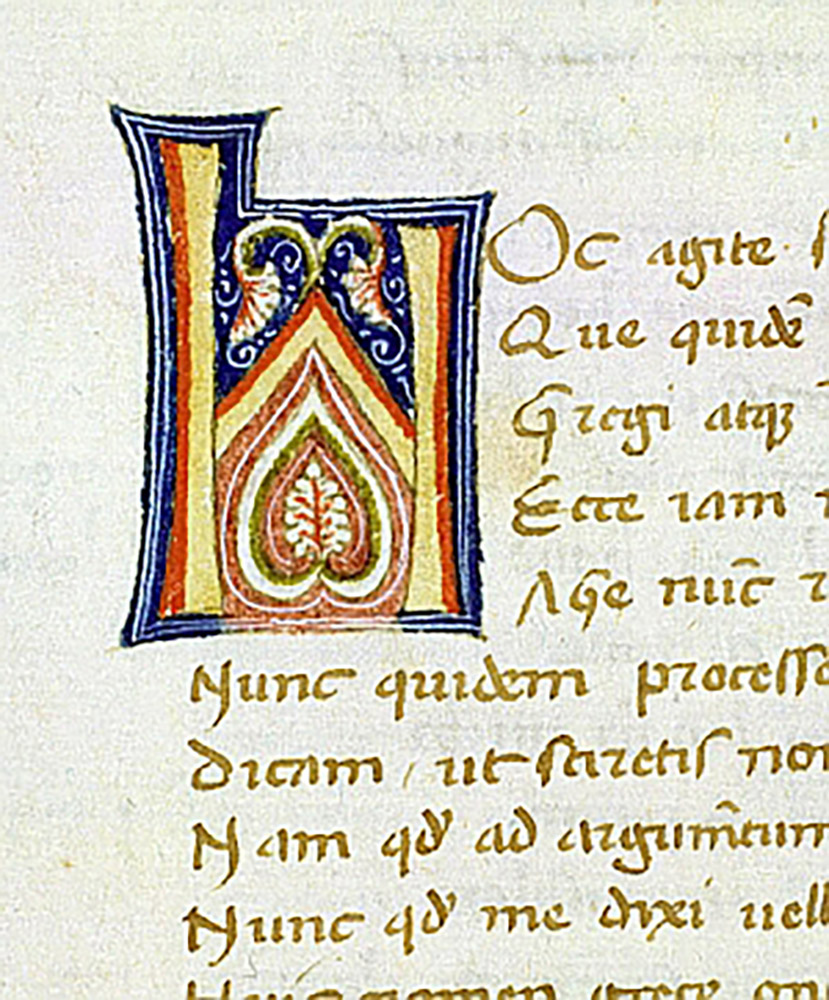 HOc agite
Que quidē
Gregi atqꝫ
Ecce iam
Age nūc
Nunc quidem processe
Dicam, ut sciretis non
Nam qđ ad argum̄tum
Nunc qđ me dixi uell